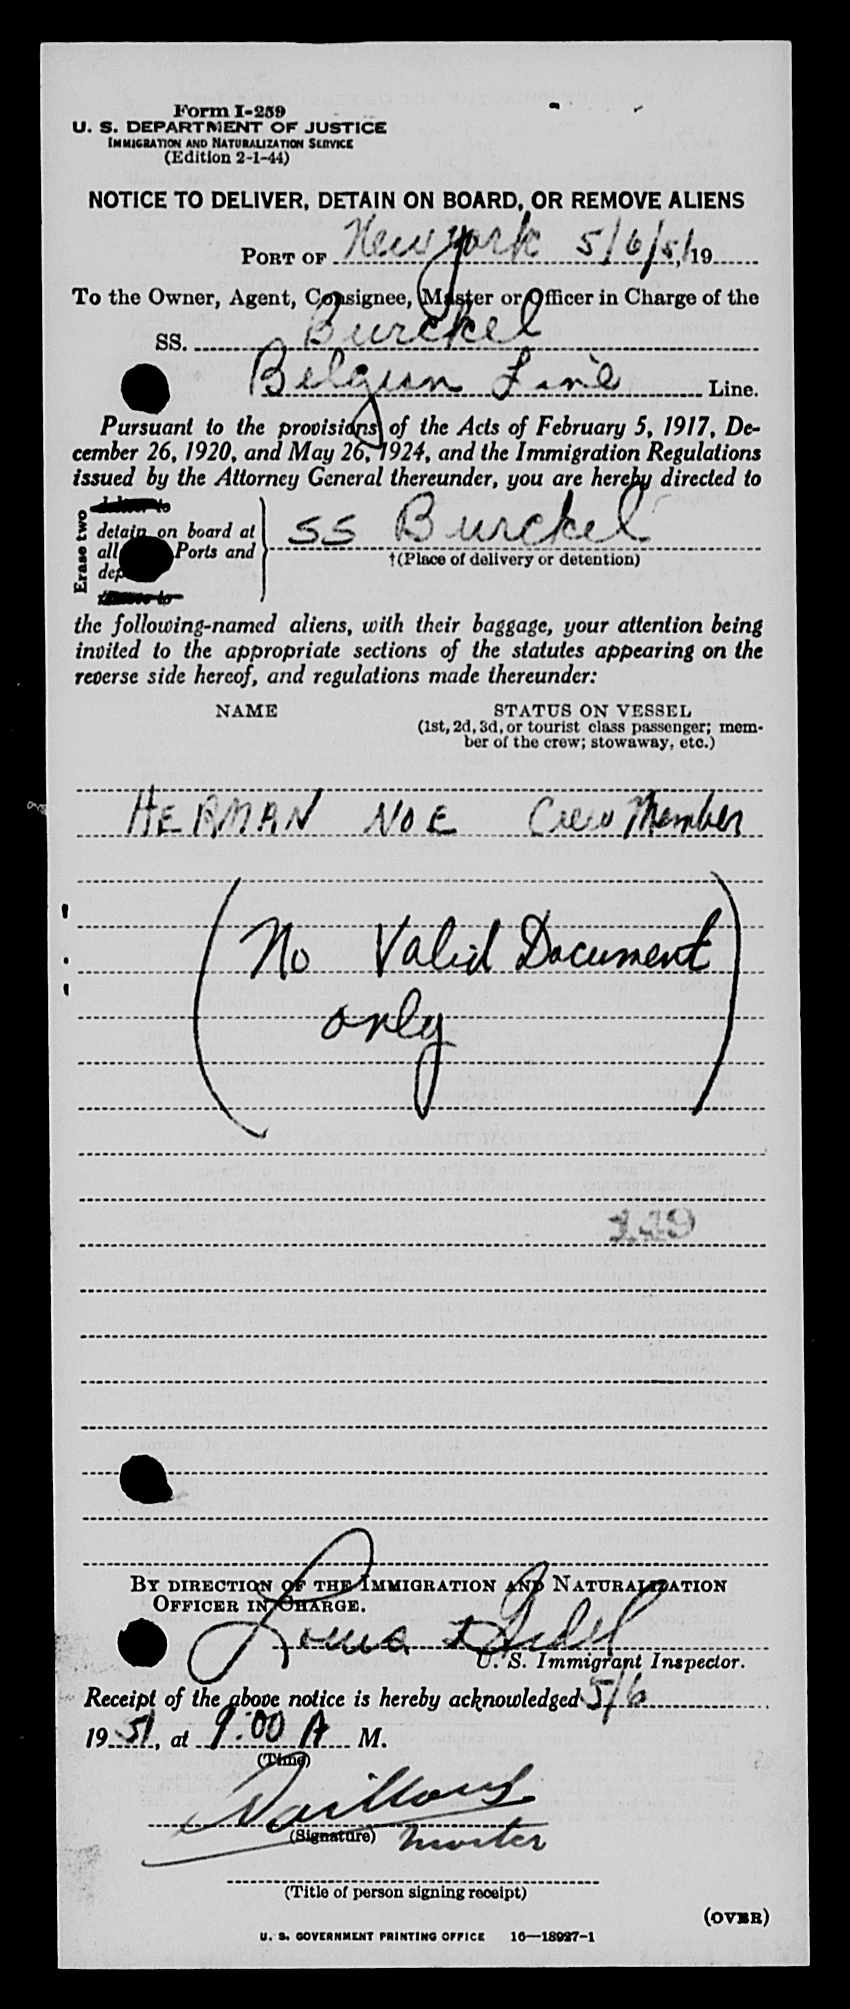 Form I-259
U. S. DEPARTMENT OF JUSTICE
IMMIGRATION AND NATURALIZATION SERVICE
(Edition 2-1-44)
NOTICE TO DELIVER, DETAIN ON BOARD, OR REMOVE ALIENS
PORT OF New york 5/6/51, 19
To the Owner, Agent, Consignee, Master or Officer in Charge of the
SS. Burckel
Belgian Line Line.
Pursuant to the provisions of the Acts of February 5, 1917, De-
cember 26, 1920, and May 26, 1924, and the Immigration Regulations
issued by the Attorney General thereunder, you are hereby directed to
Erase two
deliver to
detain on board at
all Ports and
SS Burckel
†(Place of delivery or detention)
the following-named aliens, with their baggage, your attention being
invited to the appropriate sections of the statutes appearing on the
reverse side hereof, and regulations made thereunder:
NAME STATUS ON VESSEL
(1st, 2d, 3d, or tourist class passenger; mem-
ber of the crew; stowaway, etc.)
HERMAN NOE Crew Member
(No Valid Document
only)
119
BY DIRECTION OF THE IMMIGRATION AND NATURALIZATION
OFFICER IN CHARGE.
U. S. Immigrant Inspector.
Receipt of the above notice is hereby acknowledged 5/6
1951, at 9:00 A M.
(Time)
(Signature) Master
(Title of person signing receipt)
(OVER)
U. S. GOVERNMENT PRINTING OFFICE 16—18927-1